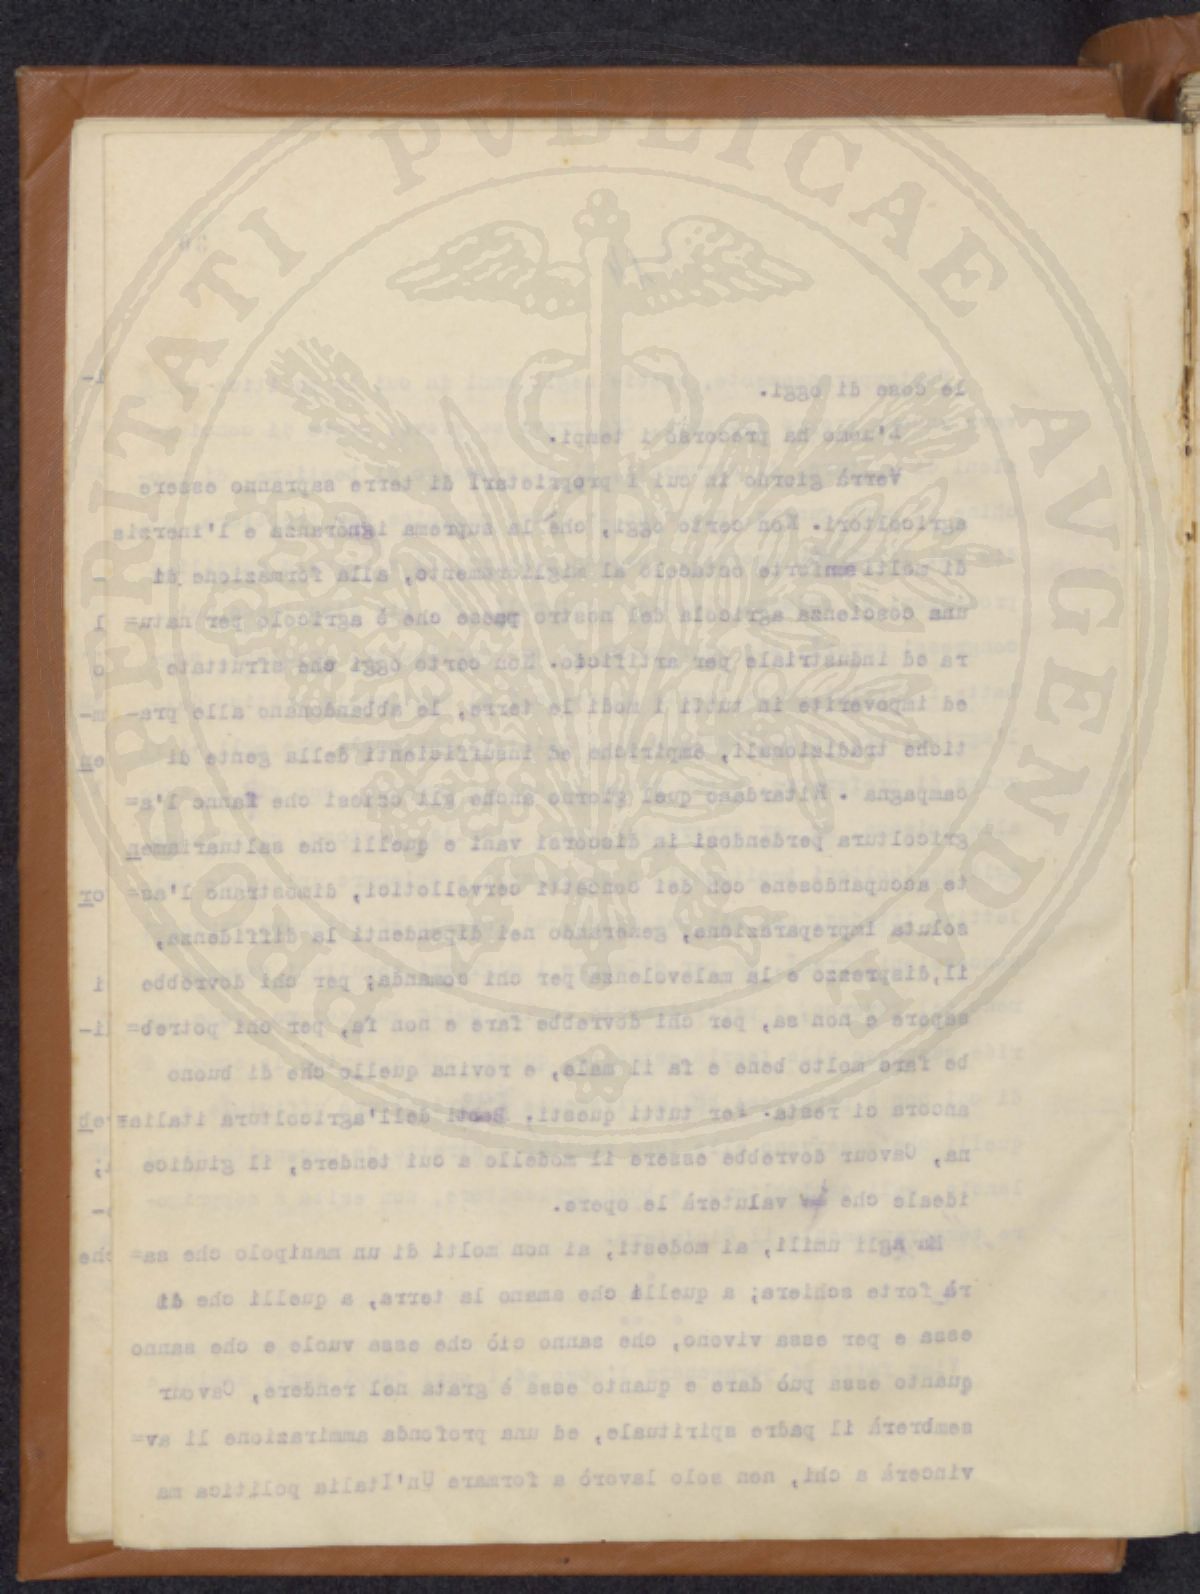 PROSPERITATI PVBLICAE AVGENDAE
le cose di oggi.
L'uomo ha precorso i tempi.
Verrà giorno in cui i proprietari di terre sapranno essere
agricoltori. Non certo oggi, chè la suprema ignoranza e l'inerzia
di molti forte ostacolo al miglioramento, alla formazione di
una coscienza agricola del nostro paese che è agricolo per natu=
ra ed industriale per artificio. Non certo oggi che sfruttate
ed impoverite in tutti i modi le terre, le abbandonano alle pra-
tiche tradizionali, empiriche ed insufficienti della gente di
campagna. Ritardano quel giorno anche gli oziosi che fanno l'a=
gricoltura perdendosi in discorsi vani e quelli che saltuariamen
te occupandosene con dei concetti cervellotici, dimostrano l'as=
soluta impreparazione, generando nei dipendenti la diffidenza,
il disprezzo e la malevolenza per chi comanda; per chi dovrebbe
sapere e non sa, per chi dovrebbe fare e non fa, per chi potreb=
be fare molto bene e fa il male, e rovina quello che di buono
ancora ci resta. Per tutti questi. dell'agricoltura italia=
na, Cavour dovrebbe essere il modello a cui tendere, il giudice
ideale che valuterà le opere.
Ma agli umili, ai modesti, ai non molti di un manipolo che sa=
rà forte schiera; a quelli che amano la terra, a quelli che di
essa e per essa vivono, che sanno ciò che essa vuole e che sanno
quanto essa può dare e quanto essa è grata nel rendere, Cavour
sembrerà il padre spirituale, ed una profonda ammirazione li av=
vincerà a chi, non solo lavorò a formare Un'Italia politica ma